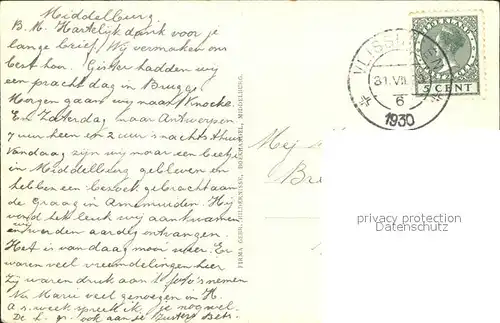 Middelburg
B. M. Hartelijk dank voor je
lange brief. Wij vermaken ons
best hoor. Gister hadden wij
een prachtdag in Brugge
Morgen gaan wij naar Knocke.
En Zaterdag naar Antwerpen
7 uur heen en 2 uur 's nachts thuis
Vandaag zijn wij maar een beetje
in Middelburg gebleven en
hebben een bezoek gebracht aan
de Graag in Arnemuiden. Hij
vond het leuk wij aankwamen
wij werden aardig ontvangen.
Het is vandaag mooi weer. Er
waren veel vreemdelingen hier
Zij waren druk aan 't foto's nemen
Nu Marie veel genoegen in H.
a.s. week spreek ik je nog wel.
De L. gr. ook aan je zusters Bets.
FIRMA GEBR. MIDDELBURG.
Mej
Br
VLISSINGEN
31.VII
6
1930
NEDERLAND
5 CENT
privacy protection
Datenschutz